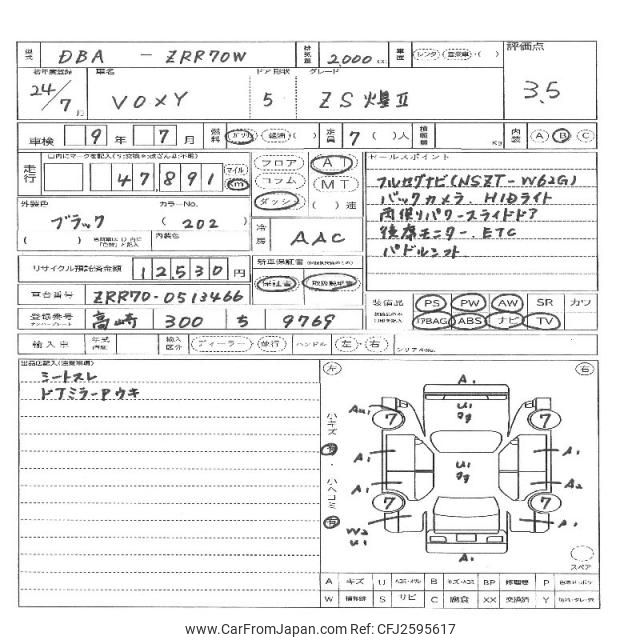 型式 DBA - ZRR70W 排気量 2,000 cc 車歴 レンタ ・( ) 評価点
初年度登録 24/7月 車名 VOXY ドア形状 5 グレード ZS 煌Ⅱ 3.5
車検 9年 7月 燃料 ガソリン 軽油( ) 定員 7( )人 積載量 Kg 内装 A B C
走行 47,891 マイル Km
フロア コラム ダッシュ AT MT ( )速
セールスポイント
フルセグナビ(NSZT-W62G)
バックカメラ、HIDライト
両側パワースライドドア
後席モニター、ETC
パドルシフト
外装色 ブラック カラーNo. ( 202 )
( ) 内装色
冷房 AAC
リサイクル預託済金額 12,530円
新車保証書 保証書 取扱説明書
車台番号 ZRR70-0513466
装備品 PS PW AW SR カワ
エアBAG ABS ナビ TV
登録番号 ナンバープレート 高崎 300 ち 9769
輸入車 年式 輸入区分 ディーラー・並行 ハンドル 左・右 シリアルNo.
出品店記入(注意事項)
シートスレ
ドアミラーPウキ
左 右
小キズ 有
小ヘコミ 有
A1
AU1 7 U1 7
A1 U1 A1
A1 A2
7 7
W2 U1 A1
A1
スペア
A キズ U B BP 修理歴 P
W 補修跡 S サビ C 腐食 XX 交換済 Y
www.CarFromJapan.com - CFJ2595617